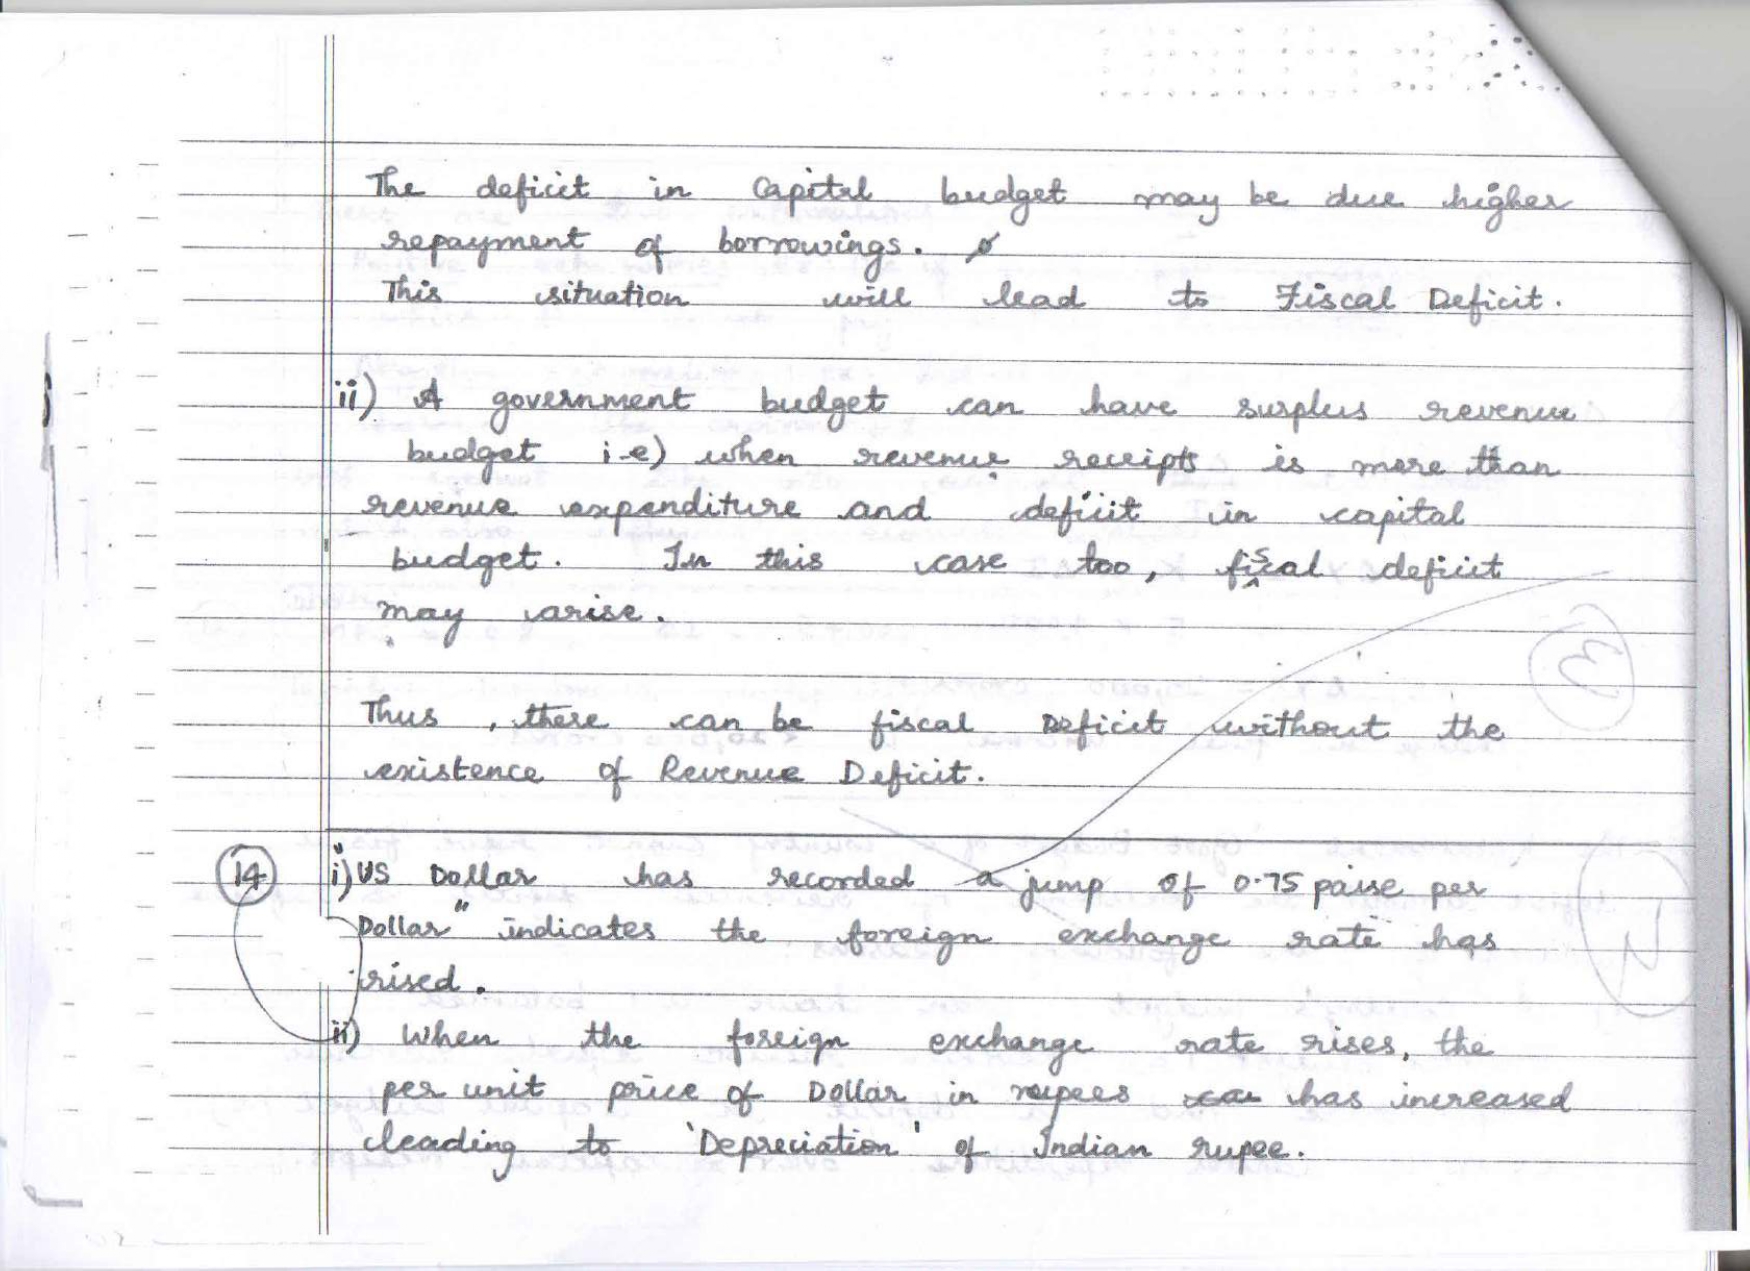 The deficit in Capital budget may be due higher
repayment of borrowings.
This situation will lead to Fiscal Deficit.
ii) A government budget can have surplus revenue
budget i.e) when revenue receipts is more than
revenue expenditure and deficit in capital
budget. In this case too, fiscal deficit
may arise.
Thus, there can be fiscal Deficit without the
existence of Revenue Deficit.
14 i) US Dollar has recorded a jump of 0.75 paise per
Dollar" indicates the foreign exchange rate has
rised.
ii) When the foreign exchange rate rises, the
per unit price of Dollar in rupees has increased
leading to 'Depreciation' of Indian rupee.